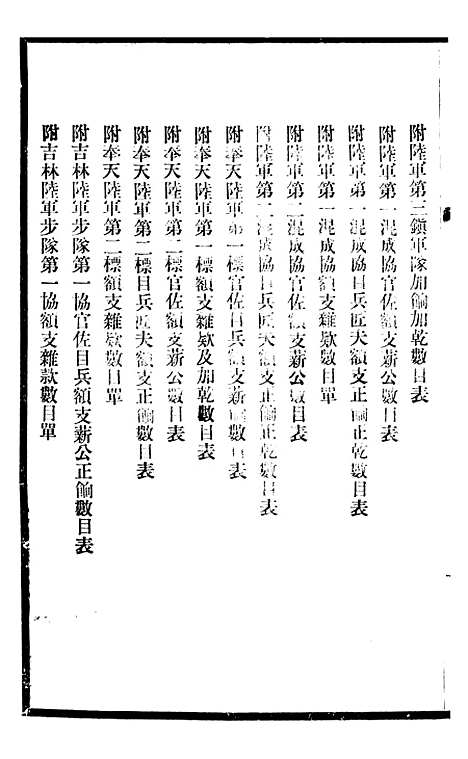 附陸軍第三鎮軍隊加餉加乾數目表
附陸軍第一混成協官佐額支薪公數目表
附陸軍第一混成協目兵匠夫額支正餉正乾數目表
附陸軍第一混成協額支雜欵數目單
附陸軍第二混成協官佐額支薪公數目表
附陸軍第二混成協目兵匠夫額支正餉正乾數目表
附奉天陸軍第一標官佐目兵額支薪餉數目表
附奉天陸軍第一標額支雜欵及加乾數目表
附奉天陸軍第二標官佐額支薪公數目表
附奉天陸軍第二標目兵匠夫額支正餉數目表
附奉天陸軍第二標額支雜欵數目單
附吉林陸軍步隊第一協官佐目兵額支薪公正餉數目表
附吉林陸軍步隊第一協額支雜款數目單